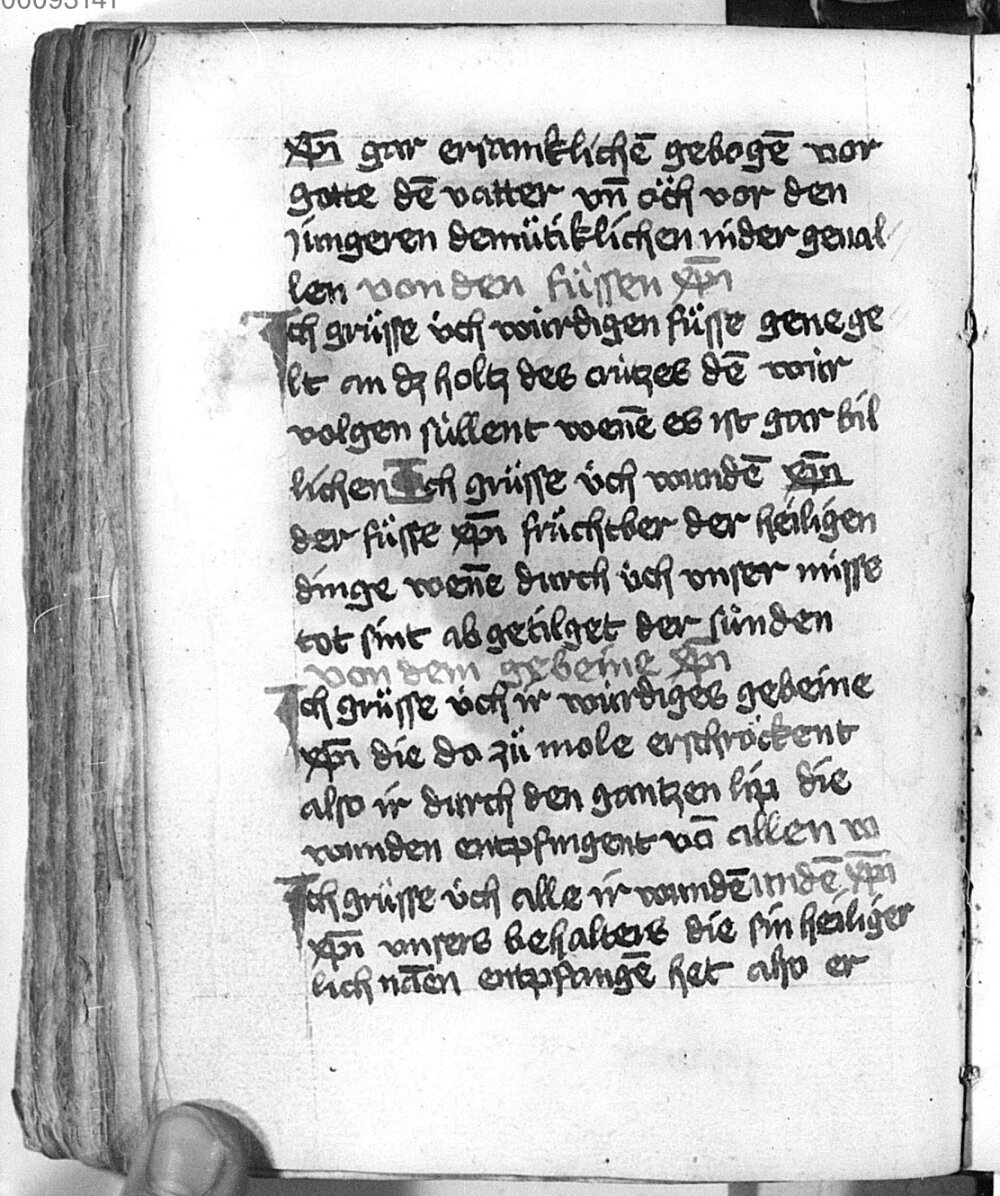 00093141
xp̄i gar ersamklichē gebogē vor
gotte dē vatter vn̄ öch vor den
jungeren demütiklichen nider geual
len von den füssen xp̄i
Ich grüsse üch würdigen füsse genege
lt an dz holtz des crützes dē wir
volgen süllent wen̄e es ist gar bil
lichen Ich grüsse üch wundē xp̄i
der füsse xp̄i früchtber der heiligen
dinge wen̄e durch üch vnser misse
tot sint abgetilget der sünden
von dem gebeine xp̄i
Ich grüsse üch ir würdiges gebeine
xp̄i die do zü mole erschröckent
also ir durch den gantzen lip die
wunden entpfingent vō allen w
Ich grüsse üch alle ir wundē undē xp̄i
xp̄i vnsers behalters die sin heiliger
lichnā̄en entpfangē het also er